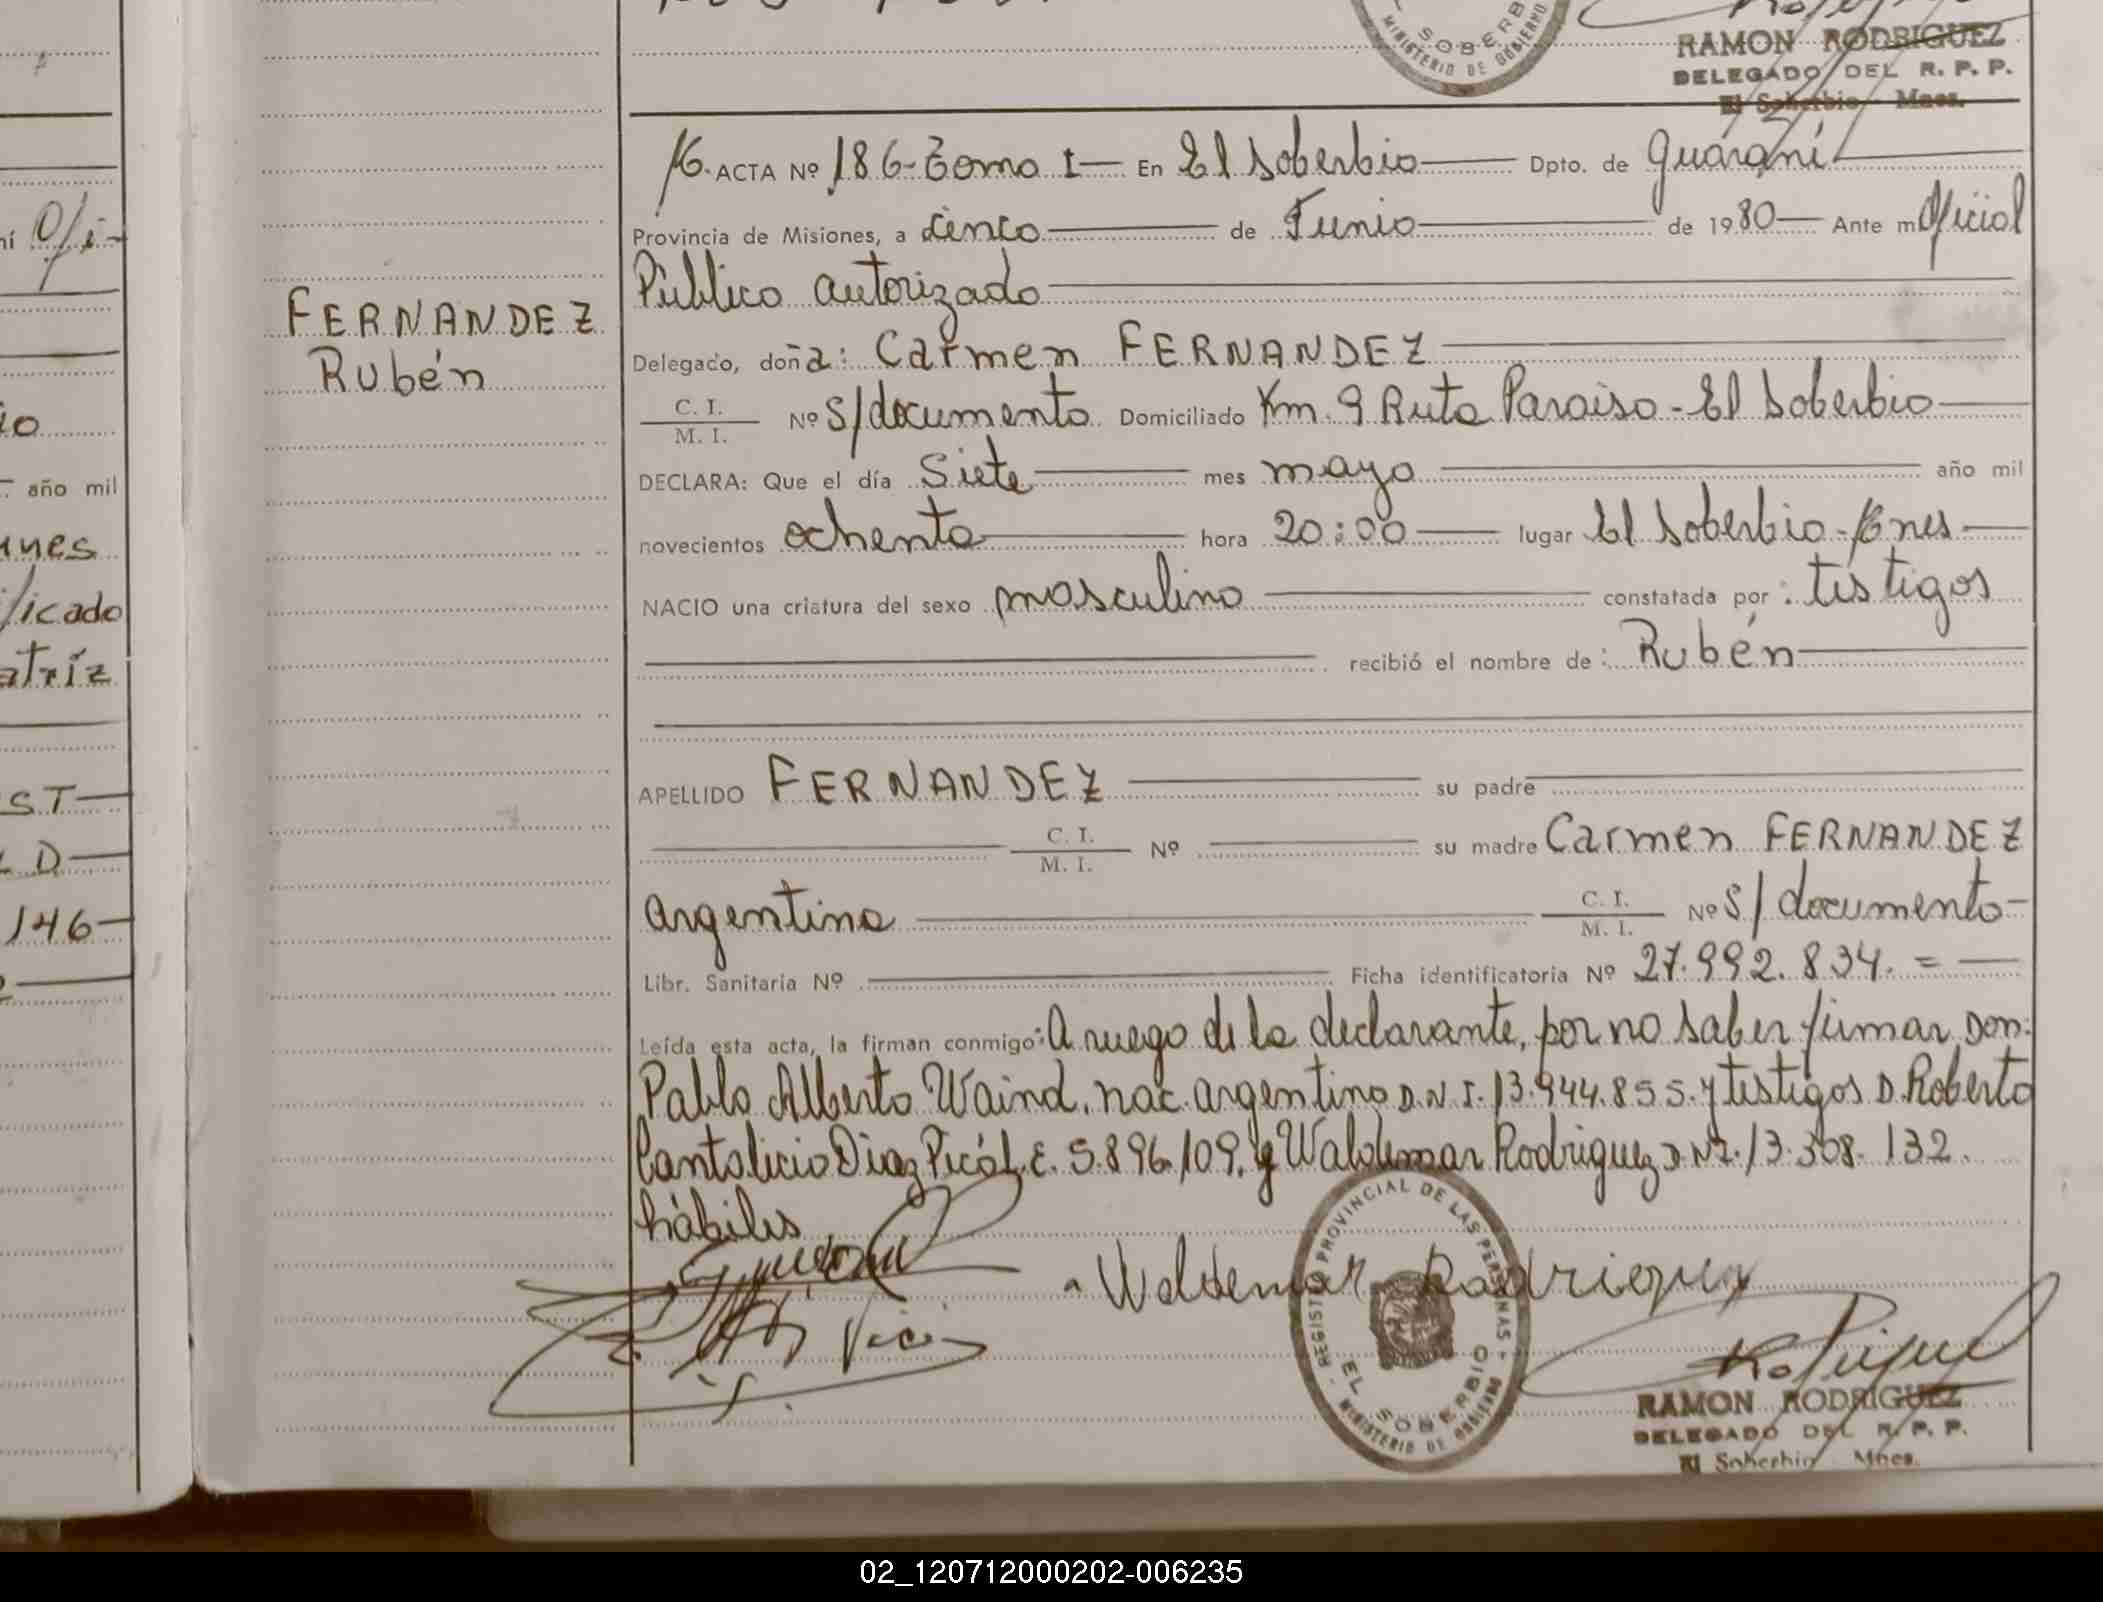 SOBERB
MINISTERIO DE GOBIERNO
RAMON RODRIGUEZ
DELEGADO DEL R. P. P.
El Soberbio Mnes.
ACTA Nº 186-Tomo I En El Soberbio Dpto. de Guaraní
Provincia de Misiones, a cinco de Junio de 1980 Ante m Oficial
Público autorizado
Delegado, doña: Carmen FERNANDEZ
C. I.
M. I.
Nº S/documento Domiciliado Km. 9 Ruta Paraiso - El Soberbio
DECLARA: Que el día Siete mes mayo año mil
novecientos ochenta hora 20:00 lugar El Soberbio - Mnes
NACIO una criatura del sexo masculino constatada por: testigos
recibió el nombre de: Rubén
APELLIDO FERNANDEZ su padre
C. I.
M. I.
Nº su madre Carmen FERNANDEZ
argentina C. I.
M. I.
Nº S/documento-
Libr. Sanitaria Nº Ficha identificatoria Nº 27.992.834. =
Leída esta acta, la firman conmigo: A ruego de la declarante, por no saber firmar Don:
Pablo Alberto Waind, nac. argentino D.N.I. 13.944.855. y testigos D. Roberto
Cantalicio Diaz Picó L.E. 5.896.109, y Waldemar Rodriguez D.N.I. 13.308.132.
hábiles
Waldemar Rodriguez
REGISTRO PROVINCIAL DE LAS PERSONAS
EL SOBERBIO
MINISTERIO DE GOBIERNO
RAMON RODRIGUEZ
DELEGADO DEL R. P. P.
El Soberbio Mnes.
FERNANDEZ
Rubén
año mil
icado
atríz
ST
146
02_120712000202-006235